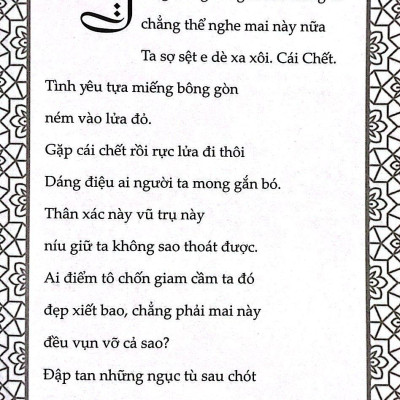 chẳng thể nghe mai này nữa
Ta sợ sệt e dè xa xôi. Cái Chết.
Tình yêu tựa miếng bông gòn
ném vào lửa đỏ.
Gặp cái chết rồi rực lửa đi thôi
Dáng điệu ai người ta mong gắn bó.
Thân xác này vũ trụ này
níu giữ ta không sao thoát được.
Ai điểm tô chốn giam cầm ta đó
đẹp xiết bao, chẳng phải mai này
đều vụn vỡ cả sao?
Đập tan những ngục tù sau chót